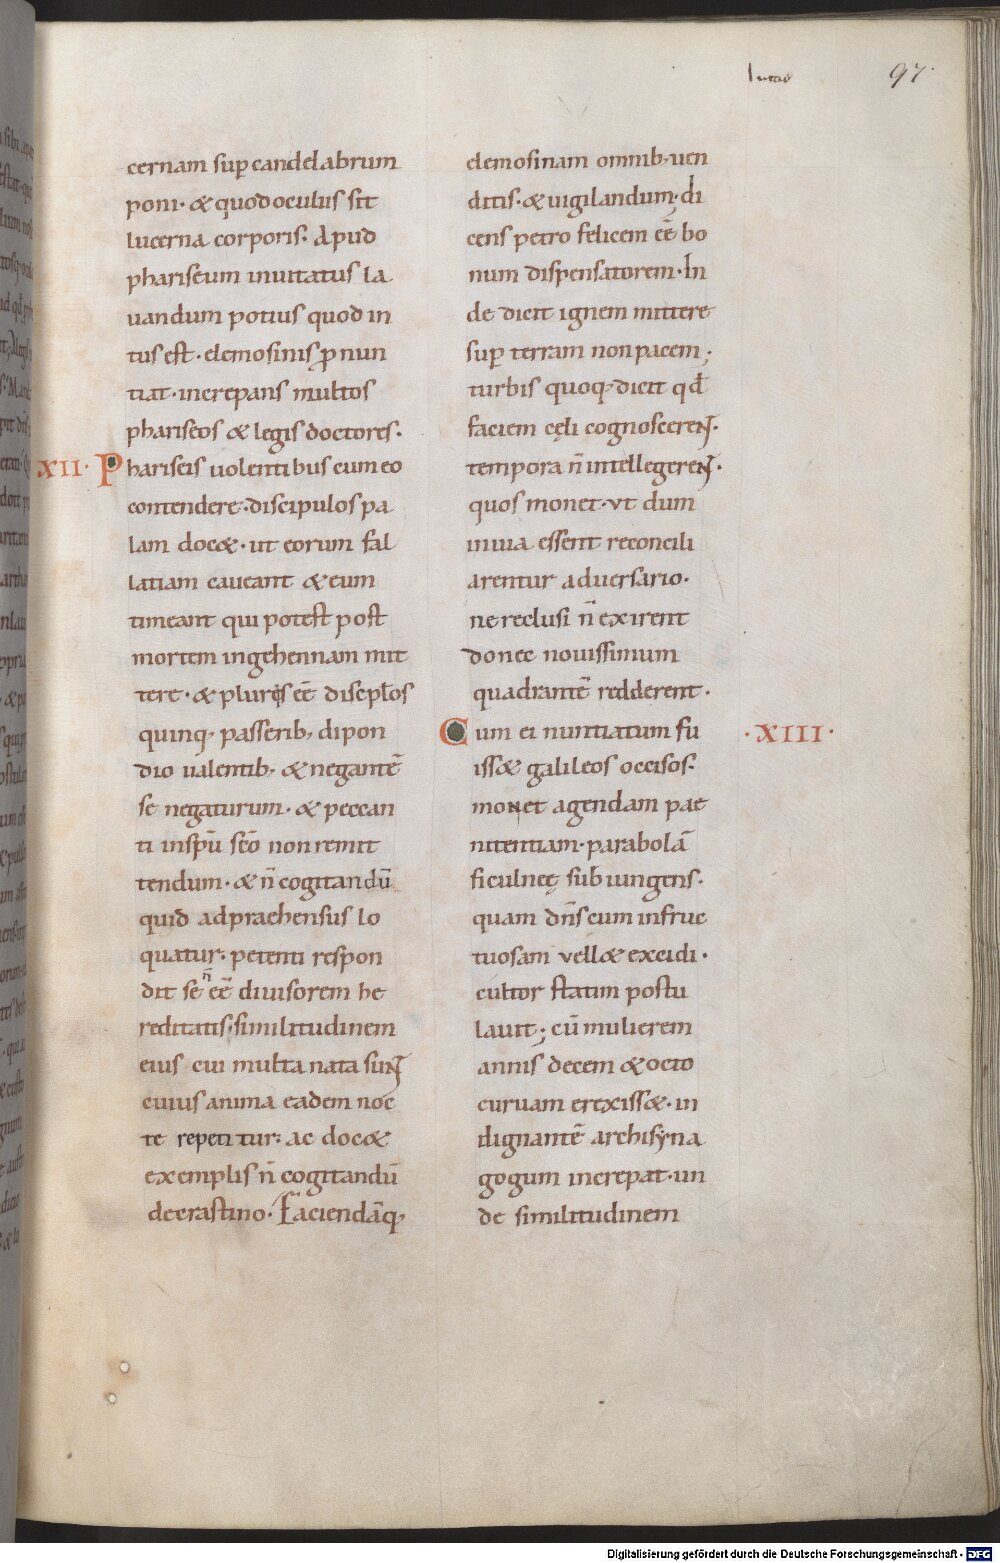 lucas
97.
cernam sup candelabrum
poni· & quod oculus sit
lucerna corporis. Apud
phariseum inuitatus la
uandum potius quod in
tus est· elemosinis p̄nun
tiat· increpans multos
phariseos & legis doctores·
XII· Phariseis uolentibus cum eo
contendere· discipulos pa
lam doc&· ut eorum fal
latiam caueant & eum
timeant qui potest post
mortem in gehennam mit
tere· & pluris eē discplos
quinq; passerib; dipon
dio ualentib; & negantē
se negaturum· & peccan
ti in spū scō non remit
tendum· & n̄ cogitandū
quid adpraehensus lo
quatur· petenti respon
dit se n̄ eē diuisorem he
reditatis· similitudinem
eius cui multa nata sunt
cuius anima eadem noc
te repetitur· ac doc&
exemplis n̄ cogitandū
de crastino· Faciendāq;
elemosinam omnib; uen
ditis· & uigilandum; di
cens petro felicem eē bo
num dispensatorem· In
de dicit ignem mittere
sup terram non pacem;
turbis quoq; dicit qđ
faciem cęli cognoscerent·
tempora n̄ intellegerent·
quos monet· vt dum
in uia essent reconcili
arentur aduersario·
ne reclusi n̄ exirent
donec nouissimum
quadrantē redderent·
Cum ei nuntiatum fu ·XIII·
iss& galileos occisos·
monet agendam pae
nitentiam· parabolā
ficulneę subiungens·
quam dn̄s cum infruc
tuosam vell& excidi·
cultor statim postu
lauit; cū mulierem
annis decem & octo
curuam erexiss&· in
dignantē archisyna
gogum increpat· un
de similitudinem
Digitalisierung gefördert durch die Deutsche Forschungsgemeinschaft - DFG